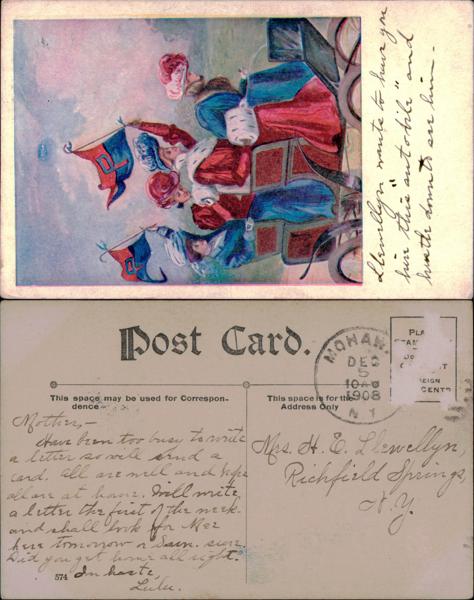 Llewellyn wants to have you
hire this "autobile" and
hunt down to see him.
P
P
Post Card.
This space may be used for Correspondence
This space is for the Address Only
MOHAWK
DEC
5
1908
N.Y.
Mother,-
Have been too busy to write
a letter so will send a
card. All are well and hope
all are at home. Will write
a letter the first of the week
and shall look for Mae
here tomorrow or Sun. sure.
Did you get home all right.
In haste
Lulu.
574
Mrs. H. E. Llewellyn,
Richfield Springs,
N.Y.